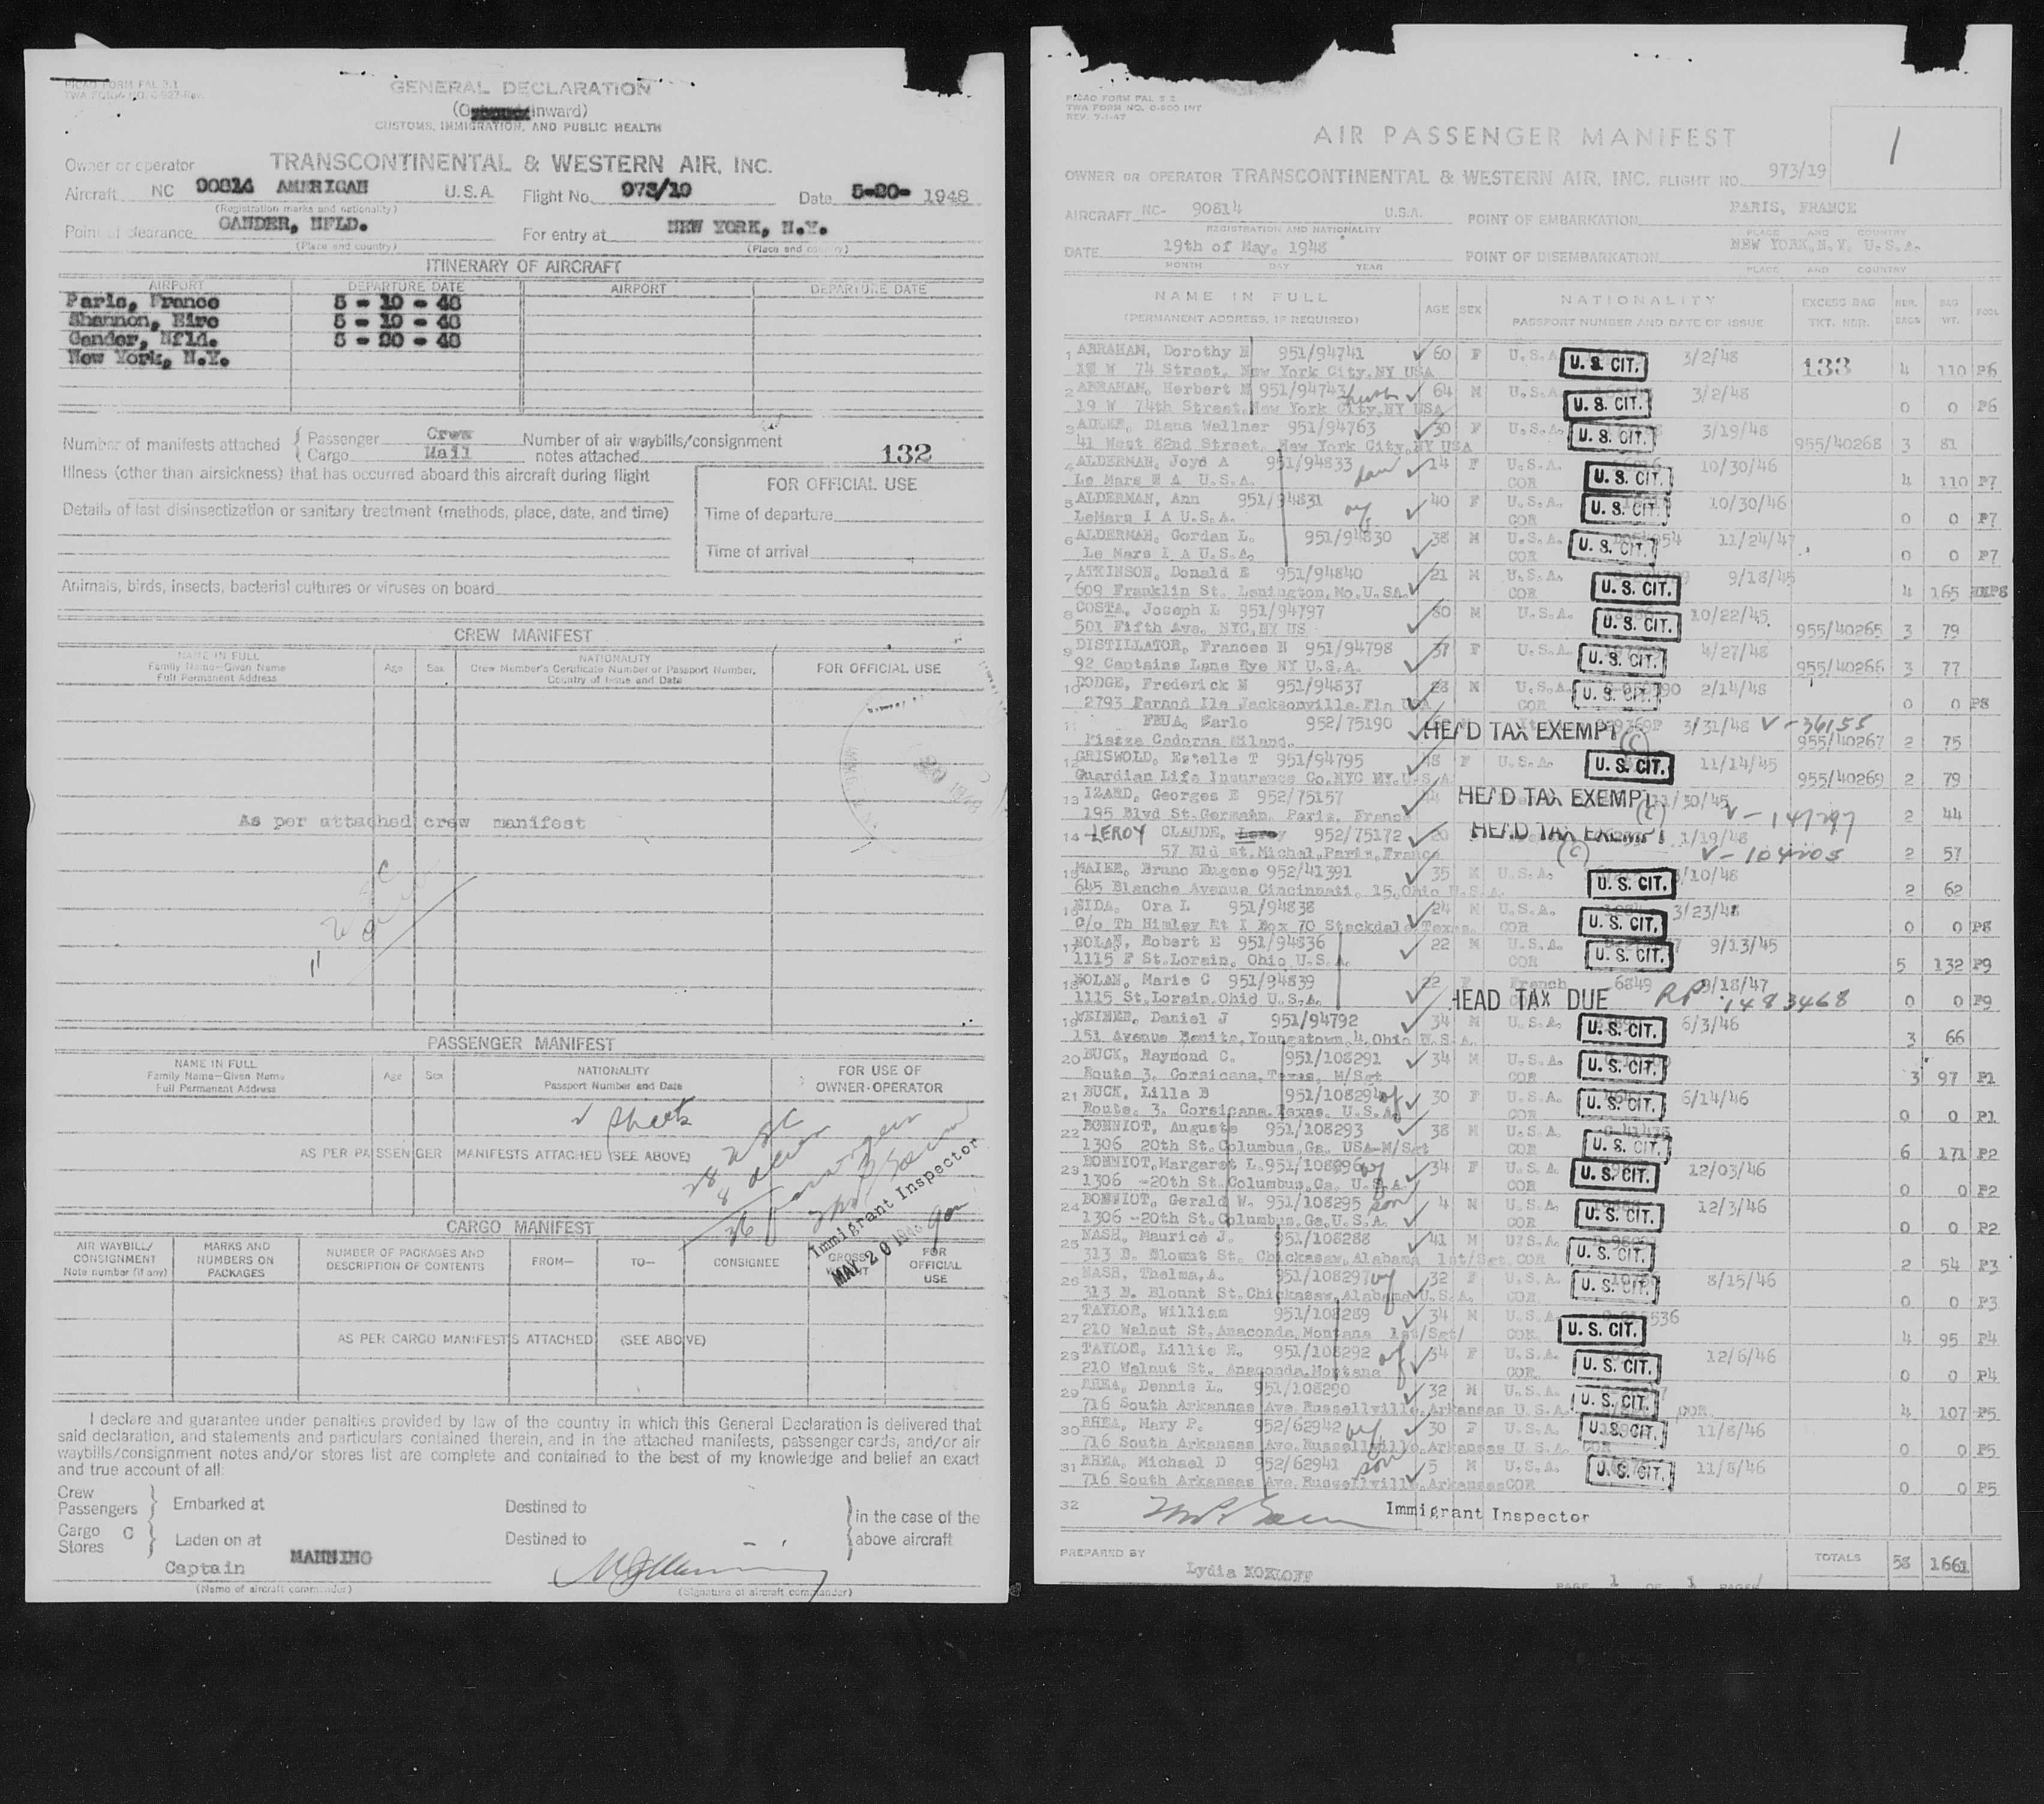 PICAO FORM PAL 2.1
TWA FORM NO. 0-927-Rev.
GENERAL DECLARATION
Inward)
CUSTOMS, IMMIGRATION, AND PUBLIC HEALTH
Owner or operator TRANSCONTINENTAL & WESTERN AIR, INC.
Aircraft NC 90814 AMERICAN U.S.A. Flight No. 973/19 Date 5-20- 1948
(Registration marks and nationality)
Point of clearance GANDER, NFLD. For entry at NEW YORK, N.Y.
(Place and country) (Place and country)
ITINERARY OF AIRCRAFT
AIRPORT DEPARTURE DATE AIRPORT DEPARTURE DATE
Paris, France 5 - 19 - 48
Shannon, Eire 5 - 19 - 48
Gander, Nfld. 5 - 20 - 48
New York, N.Y.
Number of manifests attached { Passenger Crew Number of air waybills/consignment
Cargo Mail notes attached 132
Illness (other than airsickness) that has occurred aboard this aircraft during flight
FOR OFFICIAL USE
Details of last disinsectization or sanitary treatment (methods, place, date, and time)
Time of departure
Time of arrival
Animals, birds, insects, bacterial cultures or viruses on board
CREW MANIFEST
NAME IN FULL
Family Name—Given Name
Full Permanent Address
Age Sex
NATIONALITY
Crew Member's Certificate Number or Passport Number,
Country of Issue and Date
FOR OFFICIAL USE
As per attached crew manifest
PASSENGER MANIFEST
NAME IN FULL
Family Name—Given Name
Full Permanent Address
Age Sex
NATIONALITY
Passport Number and Date
FOR USE OF
OWNER-OPERATOR
AS PER PASSENGER MANIFESTS ATTACHED (SEE ABOVE)
28 USC
8 alien
36
Immigrant Inspector
MAY 20 1948
CARGO MANIFEST
AIR WAYBILL/
CONSIGNMENT
Note number (if any)
MARKS AND
NUMBERS ON
PACKAGES
NUMBER OF PACKAGES AND
DESCRIPTION OF CONTENTS
FROM— TO— CONSIGNEE
GROSS
FOR
OFFICIAL
USE
AS PER CARGO MANIFESTS ATTACHED (SEE ABOVE)
I declare and guarantee under penalties provided by law of the country in which this General Declaration is delivered that
said declaration, and statements and particulars contained therein, and in the attached manifests, passenger cards, and/or air
waybills/consignment notes and/or stores list are complete and contained to the best of my knowledge and belief an exact
and true account of all:
Crew
Passengers } Embarked at Destined to } in the case of the
Cargo C
Stores } Laden on at Destined to above aircraft
Captain MANNING
(Name of aircraft commander) (Signature of aircraft commander)
PICAO FORM PAL 2 2
TWA FORM NO. 0-800 INT
REV. 7-1-47
AIR PASSENGER MANIFEST
1
OWNER OR OPERATOR TRANSCONTINENTAL & WESTERN AIR, INC. FLIGHT NO. 973/19
AIRCRAFT NC- 90814 U.S.A. POINT OF EMBARKATION PARIS, FRANCE
REGISTRATION AND NATIONALITY PLACE AND COUNTRY
DATE 19th of May. 1948 POINT OF DISEMBARKATION NEW YORK, N.Y. U.S.A.
MONTH DAY YEAR PLACE AND COUNTRY
NAME IN FULL
(PERMANENT ADDRESS, IF REQUIRED)
AGE SEX
NATIONALITY
PASSPORT NUMBER AND DATE OF ISSUE
EXCESS BAG
TKT. NBR.
NBR.
BAGS
BAG
WT.
POOL
1 ABRAHAM, Dorothy 951/94741 60 F U.S.A. U. S. CIT. 3/2/48 133 4 110 P6
74 Street, New York City, NY USA
2 ABRAHAM, Herbert 951/94743 husb 64 M U.S.A. U. S. CIT. 3/2/48 0 0 P6
19 W 74th Street, New York City, NY USA
3 ADLER, Diana Wallner 951/94763 30 F U.S.A. U. S. CIT. 3/19/48 955/40268 3 81
41 West 82nd Street, New York City, NY USA
4 ALDERMAN, Joyd A 951/94833 14 F U.S.A. U. S. CIT. 10/30/46 4 110 P7
Le Mars U.S.A. COR
5 ALDERMAN, Ann 951/94831 wf 40 F U.S.A. U. S. CIT. 10/30/46 0 0 P7
LeMars I A U.S.A. COR
6 ALDERMAN, Gordan L. 951/94830 38 M U.S.A. U. S. CIT. 11/24/47 0 0 P7
Le Mars I A U.S.A. COR
7 ATKINSON, Donald E 951/94840 21 M U.S.A. U. S. CIT. 9/18/45 4 165
609 Franklin St. Lexington, Mo. U.S.A. COR
8 COSTA, Joseph L 951/94797 U.S.A. U. S. CIT. 10/22/45 955/40265 3 79
501 Fifth Ave. NYC, NY US
9 DISTILLATOR, Frances 951/94798 37 F U.S.A. U. S. CIT. 4/27/48 955/40266 3 77
92 Captains Lane Rye NY U.S.A.
10 DODGE, Frederick 951/94837 28 M U.S.A. U. S. CIT. 2/14/48 0 0 P8
2793 Jacksonville Fla USA COR
11 FRUA, Carlo 952/75190 HEAD TAX EXEMPT (C) 3/31/48 V-36155 955/40267 2 75
Piazza Cadorna Milano.
12 GRISWOLD, Estelle T 951/94795 48 F U.S.A. U. S. CIT. 11/14/45 955/40269 2 79
Guardian Life Insurance Co. NYC NY. U.S.A.
13 IZARD, Georges E 952/75157 HEAD TAX EXEMPT (C) 11/30/45 V-147297 2 44
195 Blvd St. Germain, Paris, France
14 LEROY CLAUDE, Leroy 952/75172 20 HEAD TAX EXEMPT (C) 1/19/48 V-104205 2 57
57 Bld st. Michel, Paris, France
15 MAIKE, Bruno Eugene 952/41391 35 M U.S.A. U. S. CIT. /10/48 2 62
645 Blanche Avenue Cincinnati. 15, Ohio U.S.A.
16 NIDA, Ora L 951/94838 24 M U.S.A. U. S. CIT. 3/23/48 0 0 P8
C/o Th Himley Rt I Box 70 Stockdale Texas. COR
17 NOLAN, Robert E 951/94836 22 M U.S.A. U. S. CIT. 9/13/45 5 132 P9
1115 F St. Lorain, Ohio U.S.A. COR
18 NOLAN, Marie C 951/94839 22 F French 6849 9/18/47 0 0 P9
1115 St. Lorain, Ohio U.S.A. HEAD TAX DUE RP 1483468
19 WEINER, Daniel J 951/94792 34 M U.S.A. U. S. CIT. 6/3/46 3 66
151 Avenue Benita, Youngstown, 4, Ohio U.S.A.
20 BUCK, Raymond C. 951/108291 34 M U.S.A. U. S. CIT. 3 97 P1
Route 3, Corsicana, Texas, M/Sgt COR
21 BUCK, Lilla B 951/108294 wf 30 F U.S.A. U. S. CIT. 6/14/46 0 0 P1
Route. 3. Corsicana, Texas. U.S.A. COR
22 BONNIOT, Auguste 951/108293 38 M U.S.A. U. S. CIT. 6 171 P2
1306 20th St. Columbus, Ga. USA-M/Sgt COR
23 BONNIOT, Margaret L. 951/108296 wf 34 F U.S.A. U. S. CIT. 12/03/46 0 0 P2
1306 -20th St. Columbus, Ga. U.S.A. COR
24 BONNIOT, Gerald W. 951/108295 son 4 M U.S.A. U. S. CIT. 12/3/46 0 0 P2
1306 -20th St. Columbus, Ga. U.S.A. COR
25 NASH, Maurice J. 951/108288 41 M U.S.A. U. S. CIT. 2 54 P3
313 E. Blount St. Chickasaw, Alabama 1st/Sgt COR
26 NASH, Thelma, A. 951/108297 wf 32 F U.S.A. U. S. CIT. 8/15/46 0 0 P3
313 E. Blount St. Chickasaw, Alabama U.S.A. COR
27 TAYLOR, William 951/108289 34 M U.S.A. U. S. CIT. 4 95 P4
210 Walnut St. Anaconda, Montana 1st/Sgt/ COR
28 TAYLOR, Lillie E. 951/108292 wf 34 F U.S.A. U. S. CIT. 12/6/46 0 0 P4
210 Walnut St. Anaconda, Montana COR
29 RHEA, Dennis L. 951/108290 32 M U.S.A. U. S. CIT. 4 107 P5
716 South Arkansas Ave. Russellville, Arkansas U.S.A. COR.
30 RHEA, Mary P. 952/62942 wf 30 F U.S.A. U. S. CIT. 11/8/46 0 0 P5
716 South Arkansas Ave. Russellville, Arkansas U.S.A. COR
31 RHEA, Michael D 952/62941 son 5 M U.S.A. U. S. CIT. 11/8/46 0 0 P5
716 South Arkansas Ave. Russellville, Arkansas COR
32 Immigrant Inspector
PREPARED BY Lydia KOKLOFF TOTALS 58 1661
PAGE 1 OF 1 PAGES